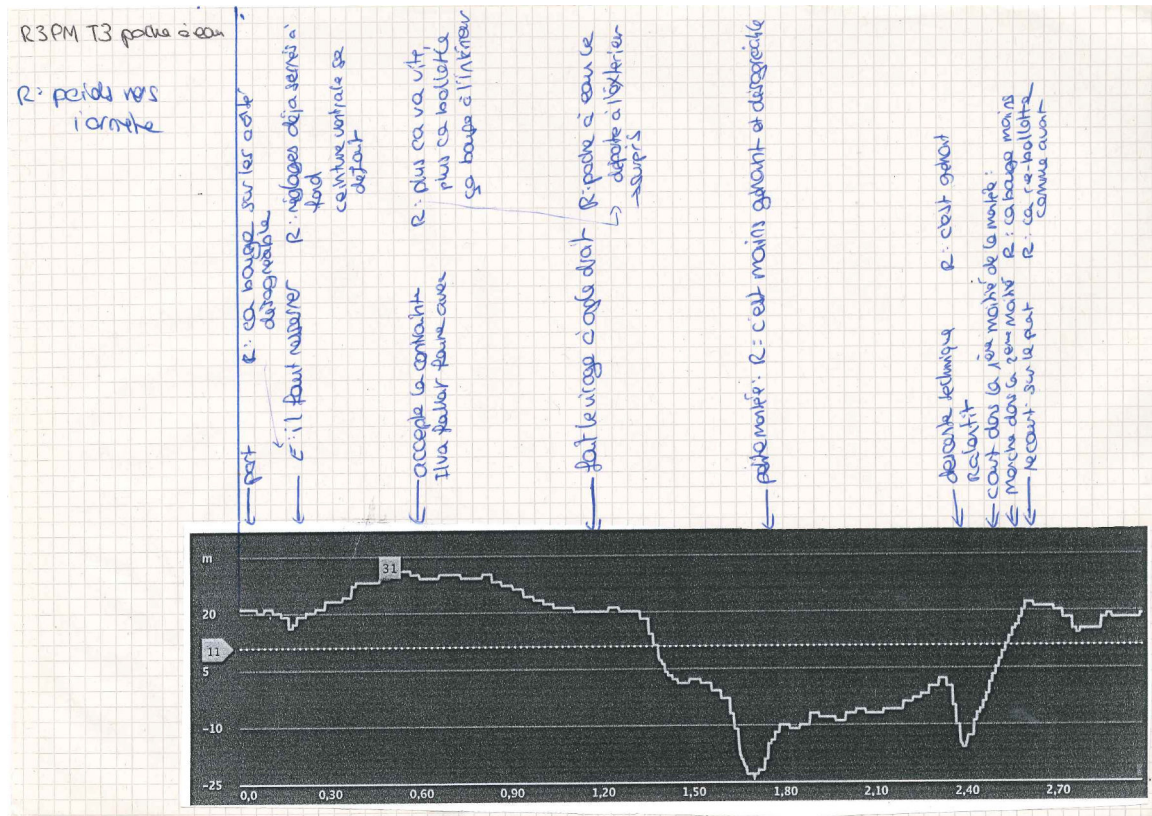 R3PM T3 poche à eau
R: poids vers
l'arrière
← part
R: ca bouge sur les coté
désagréable
← E: il faut resserrer
R: réglages déja serrés à
fond
ceinture ventrale se
défait
← accepte la contrainte
Il va falloir faire avec
R: plus ca va vite,
plus ca ballotte
ça bouge à l'intérieur
← fait le virage à angle droit
R: poche à eau le
déporte à l'extérieur
→ surpris
← petite montée: R: c'est moins gênant et désagréable
← descente technique
Ralentit
R: c'est gênant
← court dans la 1ère moitié de la montée:
← marche dans la 2ème moitié R: ca bouge moins
← recourt sur le plat R: ca re-ballotte
comme avant
m
31
20
11
5
-10
-25
0,0 0,30 0,60 0,90 1,20 1,50 1,80 2,10 2,40 2,70